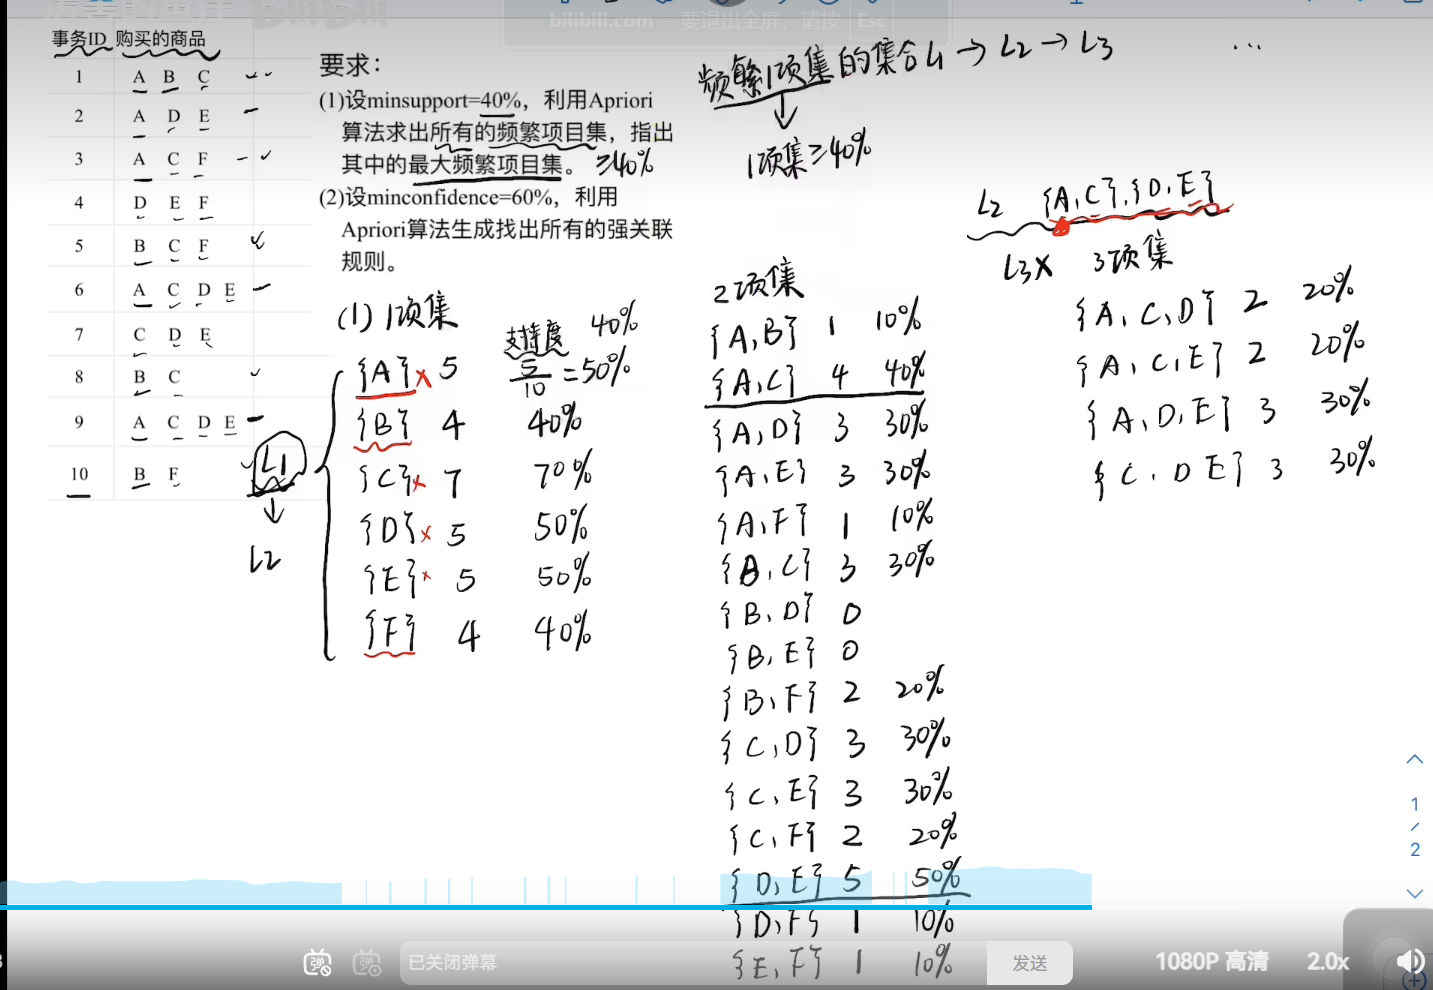 bilibili
bilibili.com - 要退出全屏，请按 Esc
事务ID 购买的商品
1 A B C
2 A D E
3 A C F
4 D E F
5 B C F
6 A C D E
7 C D E
8 B C
9 A C D E
10 B F
L1
L2
要求：
(1)设minsupport=40%，利用Apriori
算法求出所有的频繁项目集，指出
其中的最大频繁项目集。 ≥40%
(2)设minconfidence=60%，利用
Apriori算法生成找出所有的强关联
规则。
(1) 1项集
支持度 40%
{A}× 5 5/10 =50%
{B} 4 40%
{C}× 7 70%
{D}× 5 50%
{E}× 5 50%
{F} 4 40%
频繁1项集的集合L1→L2→L3 ...
1项集≥40%
2项集
{A,B} 1 10%
{A,C} 4 40%
{A,D} 3 30%
{A,E} 3 30%
{A,F} 1 10%
{B,C} 3 30%
{B,D} 0
{B,E} 0
{B,F} 2 20%
{C,D} 3 30%
{C,E} 3 30%
{C,F} 2 20%
{D,E} 5 50%
{D,F} 1 10%
{E,F} 1 10%
L2 {A,C},{D,E}
L3× 3项集
{A,C,D} 2 20%
{A,C,E} 2 20%
{A,D,E} 3 30%
{C,D E} 3 30%
1
/
2
弹
弹
已关闭弹幕
发送
1080P 高清
2.0x